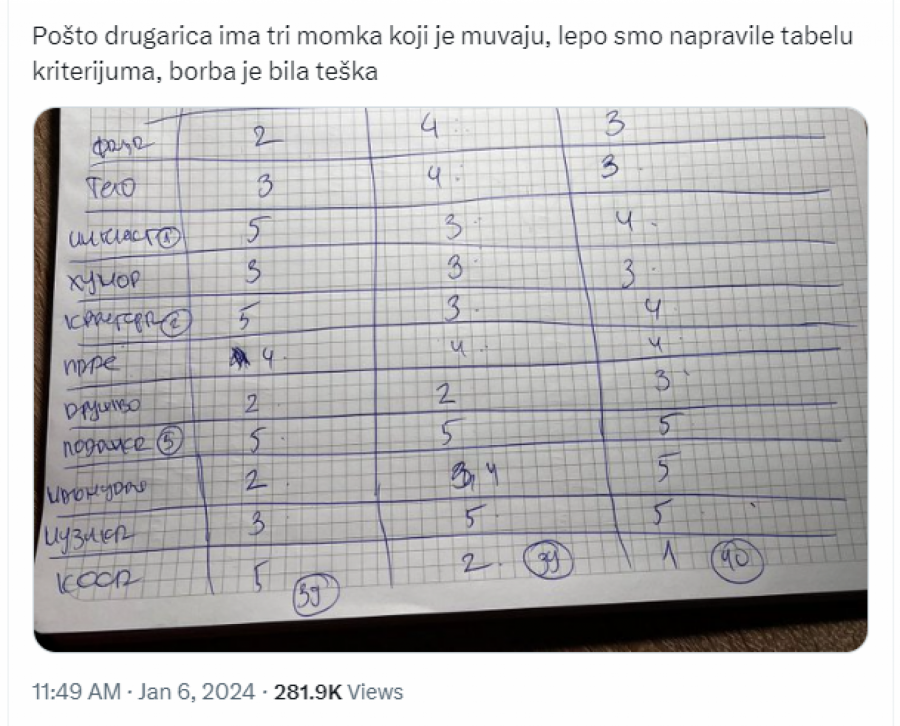 Pošto drugarica ima tri momka koji je muvaju, lepo smo napravile tabelu
kriterijuma, borba je bila teška
фаца 2 4 3
Тело 3 4 3
5 3 4
хумор 3 3 3
5 3 4
паре 4 4 4
друштво 2 2 3
5 5 5
2 4 5
музика 3 5 5
коса 5 2 1
39 39 40
11:49 AM · Jan 6, 2024 · 281.9K Views